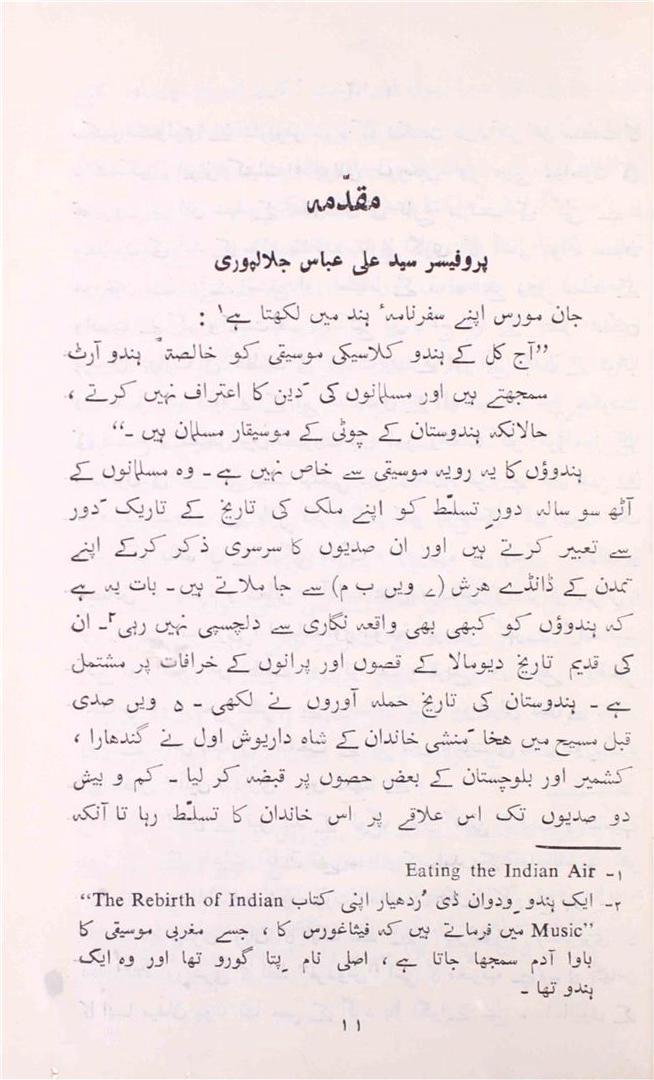 مقدّمہ
پروفیسر سید علی عباس جلالپوری
جان مورس اپنے سفرنامہٴ ہند میں لکھتا ہے۱ :
”آج کل کے ہندو کلاسیکی موسیقی کو خالصۃً ہندو آرٹ
سمجھتے ہیں اور مسلمانوں کی دَین کا اعتراف نہیں کرتے ،
حالانکہ ہندوستان کے چوٹی کے موسیقار مسلمان ہیں ۔“
ہندوؤں کا یہ رویہ موسیقی سے خاص نہیں ہے ۔ وہ مسلمانوں کے
آٹھ سو سالہ دورِ تسلّط کو اپنے ملک کی تاریخ کے تاریک دَور
سے تعبیر کرتے ہیں اور ان صدیوں کا سرسری ذکر کرکے اپنے
تمدن کے ڈانڈے ھرش (۷ ویں ب م) سے جا ملاتے ہیں ۔ بات یہ ہے
کہ ہندوؤں کو کبھی بھی واقعہ نگاری سے دلچسپی نہیں رہی۲ ۔ ان
کی قدیم تاریخ دیومالا کے قصوں اور پرانوں کے خرافات پر مشتمل
ہے ۔ ہندوستان کی تاریخ حملہ آوروں نے لکھی ۔ ۵ ویں صدی
قبل مسیح میں ھخامَنشی خاندان کے شاہ داریوش اول نے گندھارا ،
کشمیر اور بلوچستان کے بعض حصوں پر قبضہ کر لیا ۔ کم و بیش
دو صدیوں تک اس علاقے پر اس خاندان کا تسلّط رہا تا آنکہ
۱- Eating the Indian Air
۲- ایک ہندو وِدوان ڈی رُدھیار اپنی کتاب "The Rebirth of Indian
Music" میں فرماتے ہیں کہ فیثاغورس کا ، جسے مغربی موسیقی کا
باوا آدم سمجھا جاتا ہے ، اصلی نام پِتا گورو تھا اور وہ ایک
ہندو تھا ۔
۱۱